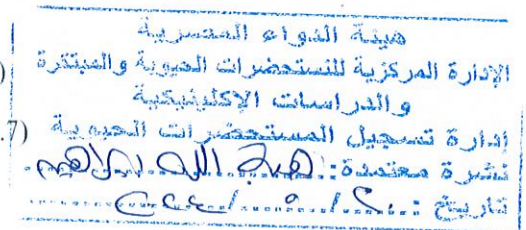 هيئة الدواء المصرية
الإدارة المركزية للمستحضرات الحيوية والمبتكرة
والدراسات الإكلينيكية
إدارة تسجيل المستحضرات الحيوية
نشرة معتمدة: هبة الله ابراهيم
تاريخ